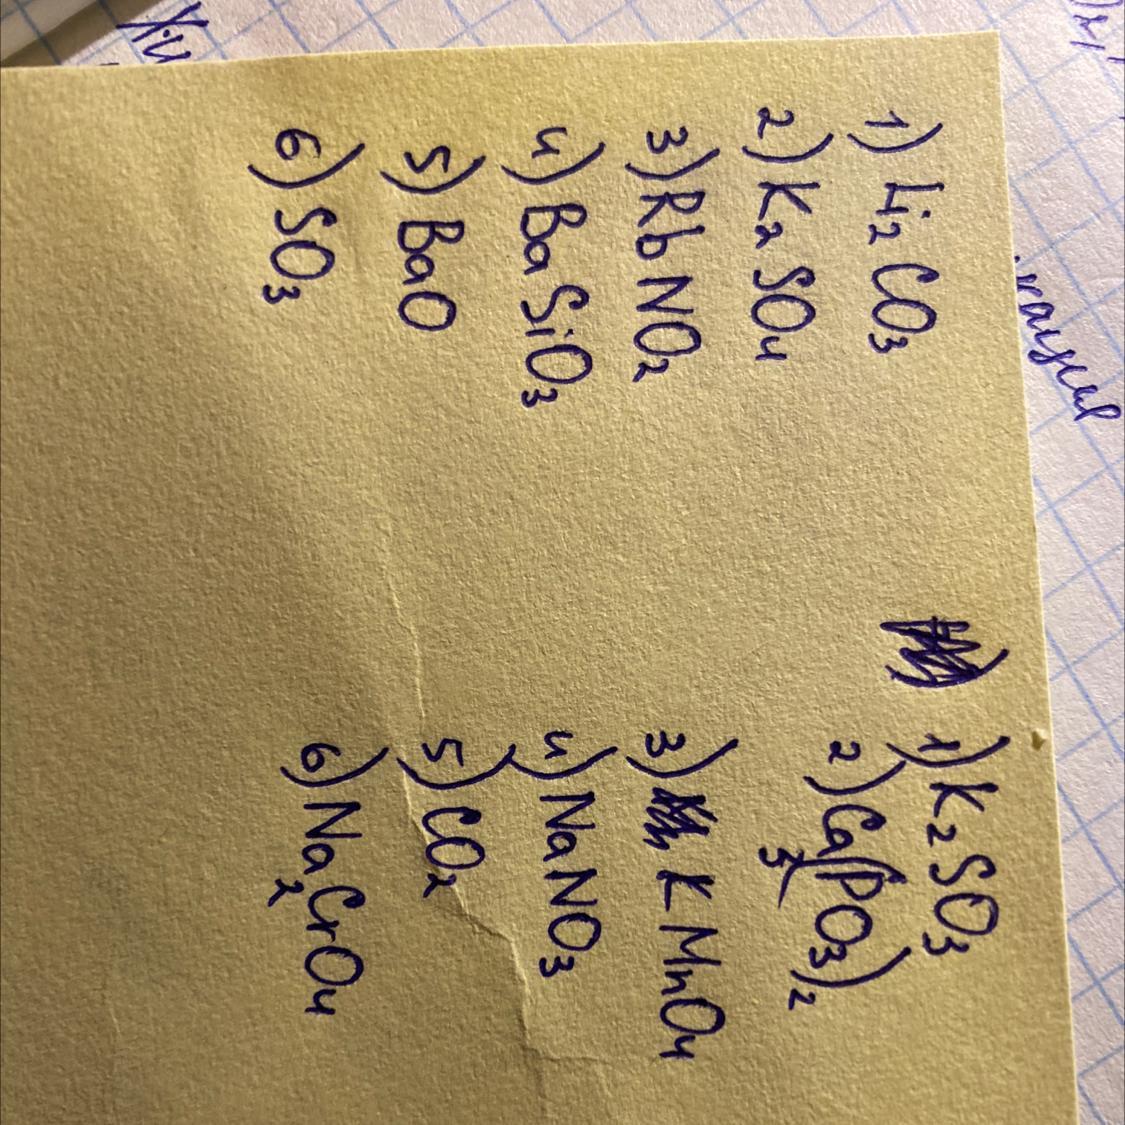 1) Li₂CO₃
2) K₂SO₄
3) RbNO₂
4) BaSiO₃
5) BaO
6) SO₃
1) K₂SO₃
2) Ca(PO₃)₂
3) KMnO₄
4) NaNO₃
5) CO₂
6) Na₂CrO₄